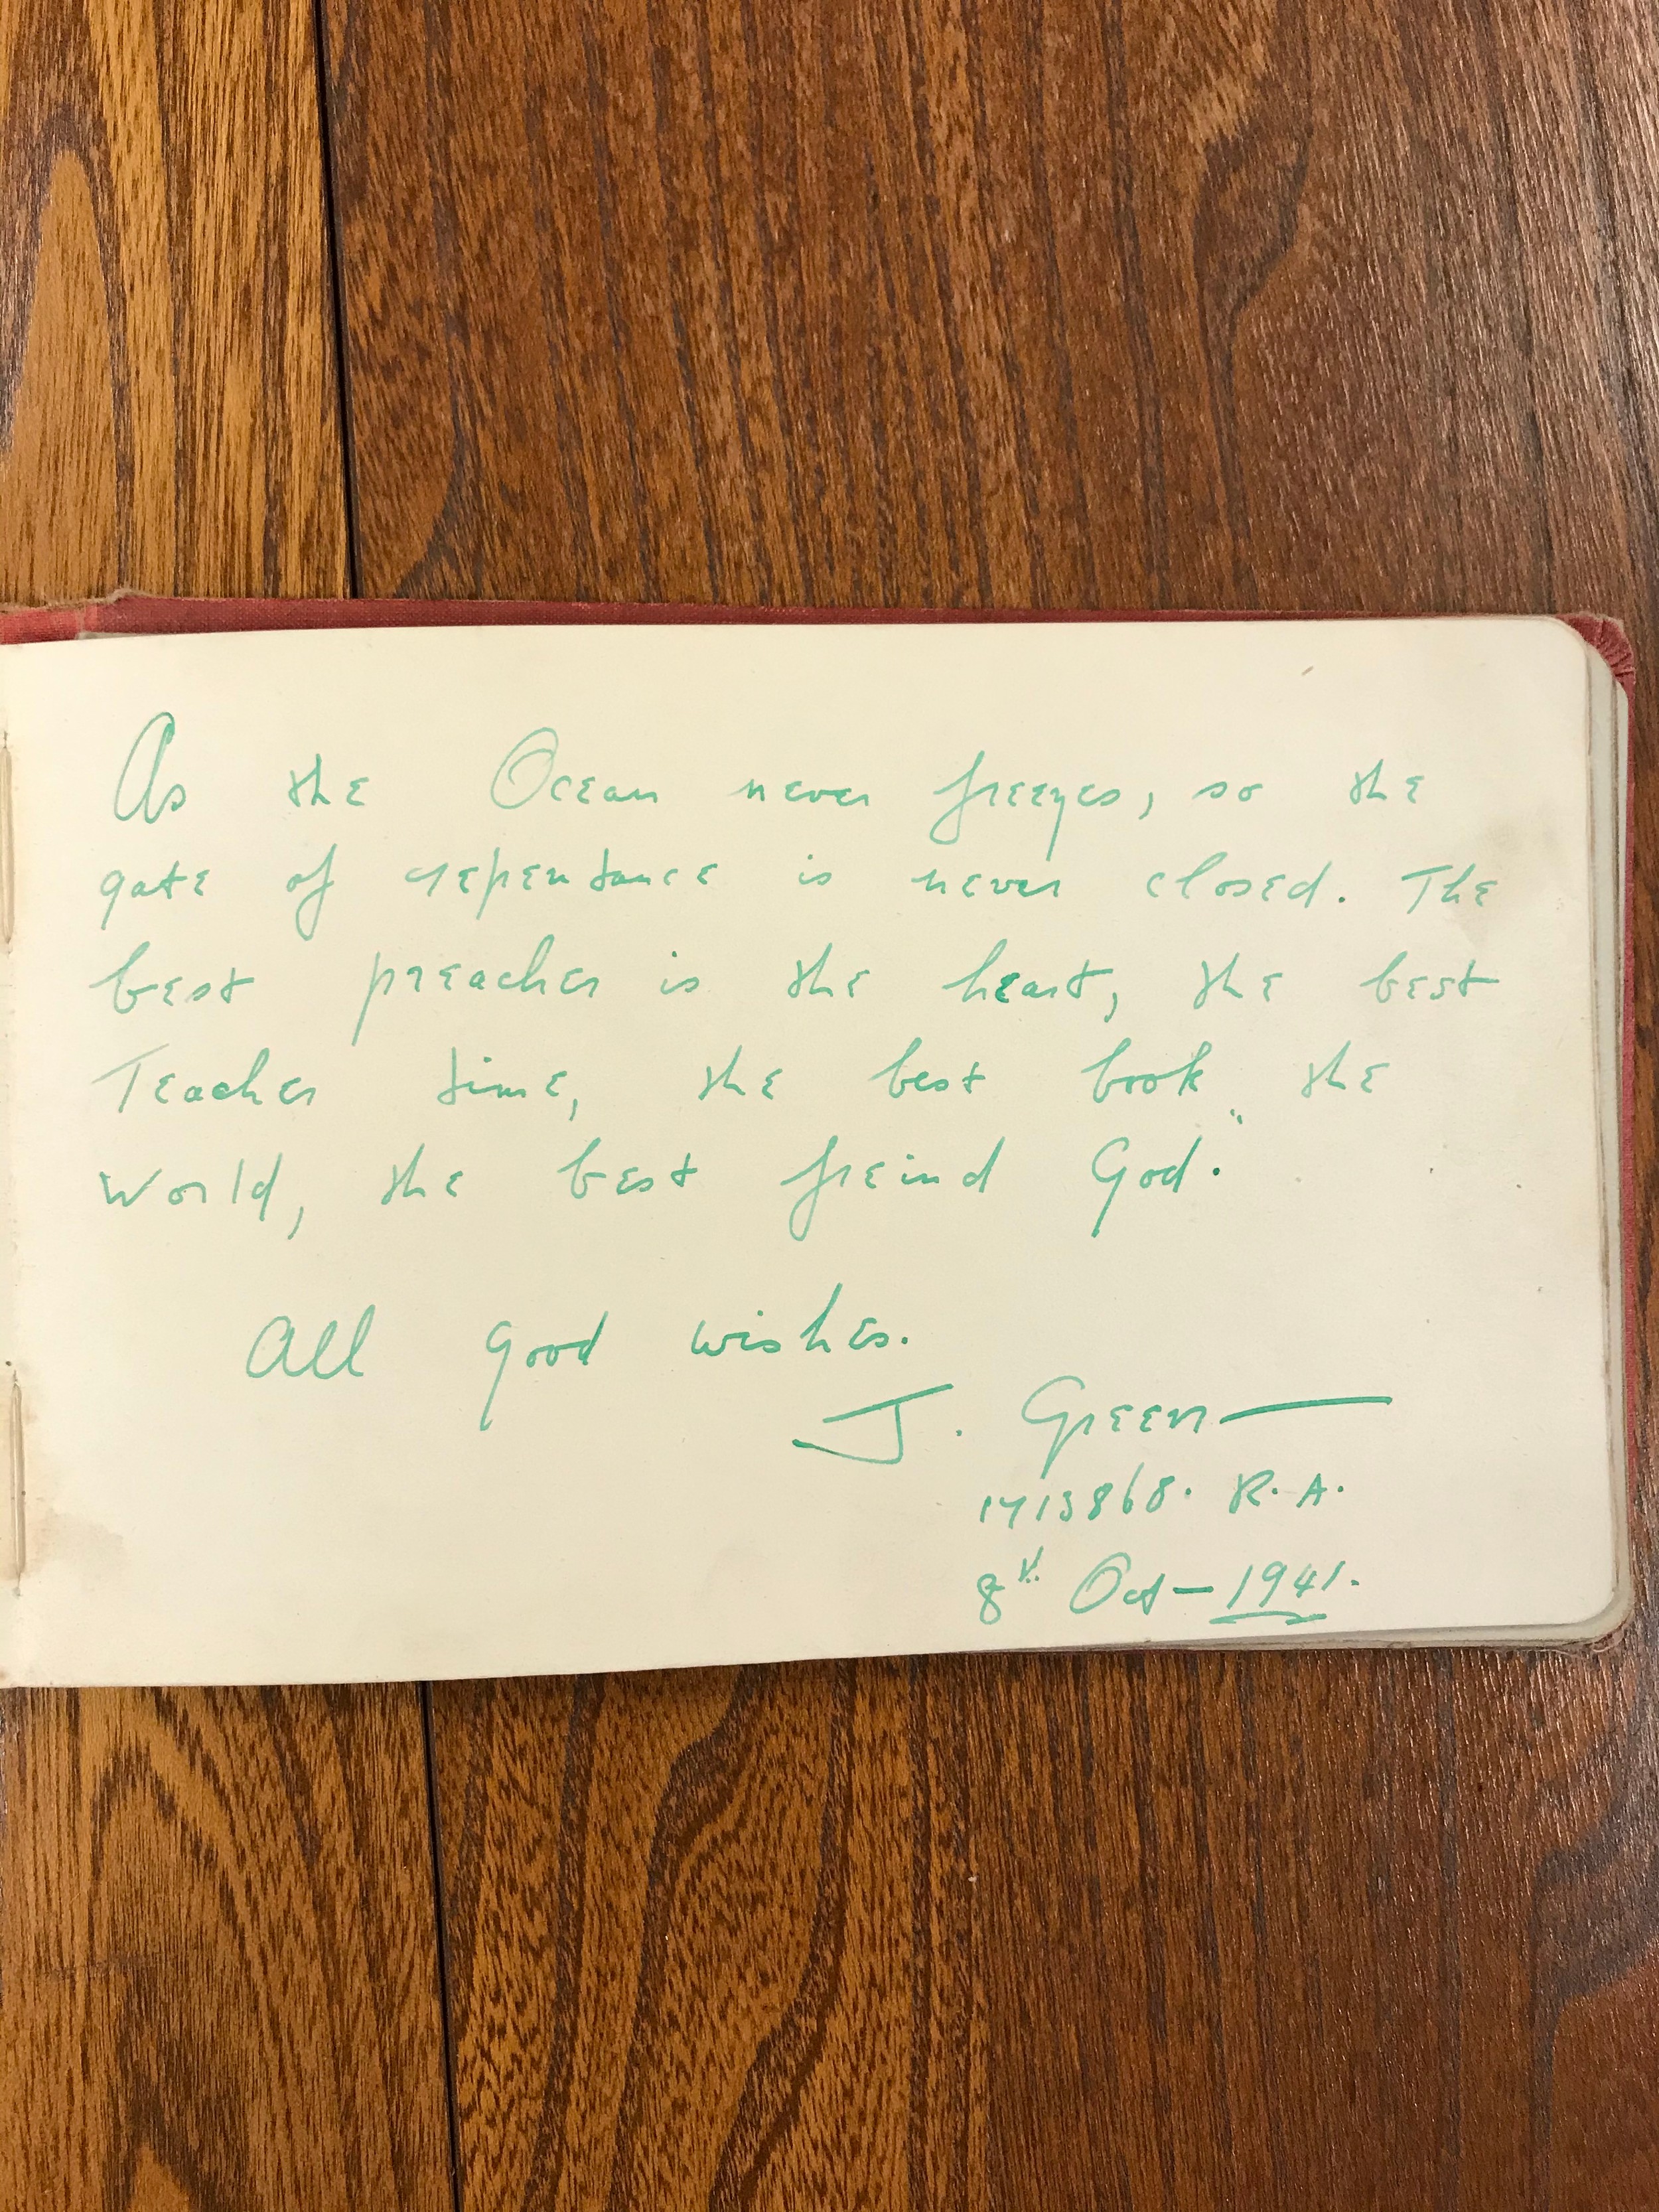 As the Ocean never freezes, so the
gate of repentance is never closed. The
best preacher is the heart, the best
Teacher time, the best book the
World, the best freind God."
All good wishes.
J. Green
1713868. R. A.
8th Oct – 1941.